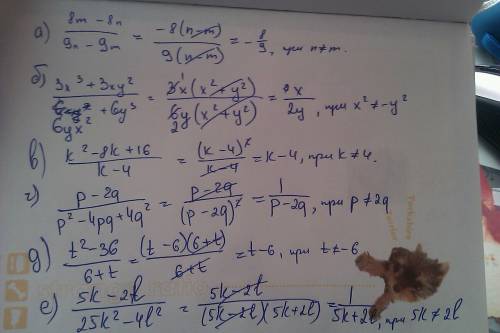 а) (8m - 8n)/(9n - 9m) = (-8(n-m))/(9(n-m)) = -8/9, при n≠m.
б) (3x³ + 3xy²)/(6yx² + 6y³) = (3¹x(x²+y²))/(6₂y(x²+y²)) = x/2y, при x² ≠ -y²
в) (k² - 8k + 16)/(k - 4) = (k-4)²/(k-4) = k-4, при k≠4.
г) (p - 2q)/(p² - 4pq + 4q²) = (p-2q)/(p-2q)² = 1/(p-2q), при p≠2q
д) (t² - 36)/(6+t) = ((t-6)(6+t))/(6+t) = t-6, при t≠-6
е) (5k - 2l)/(25k² - 4l²) = (5k-2l)/((5k-2l)(5k+2l)) = 1/(5k+2l), при 5k≠2l